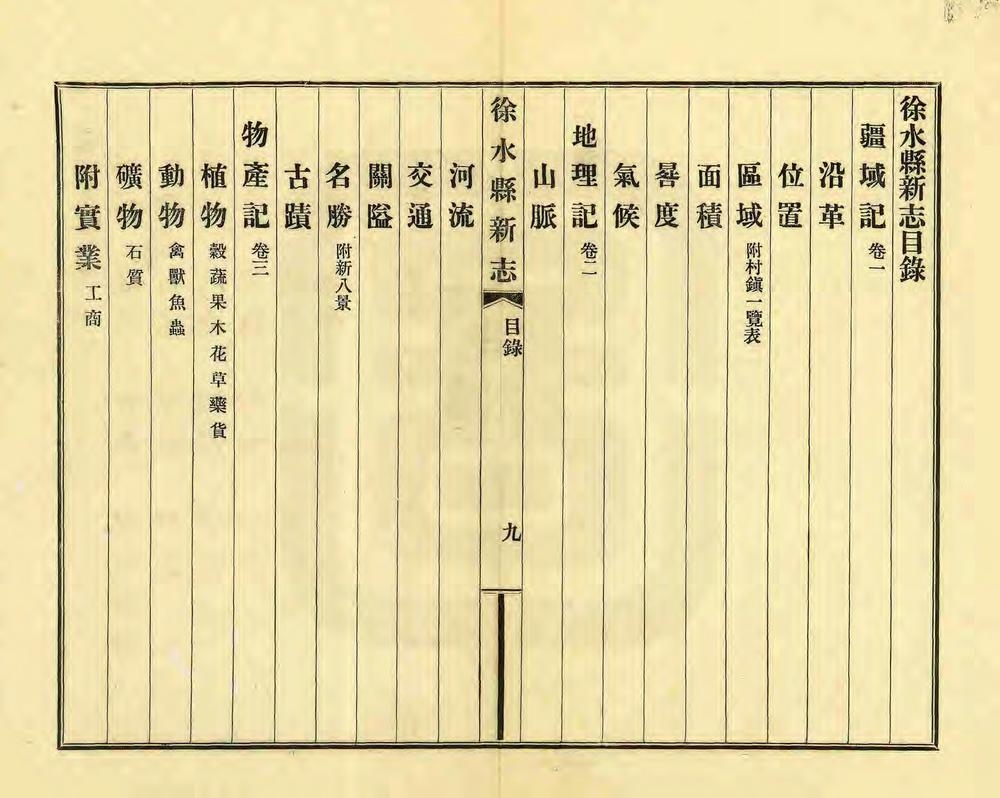 徐水縣新志目錄
疆域記 卷一
沿革
位置
區域 附村鎭一覽表
面積
晷度
氣候
地理記 卷二
山脈
徐水縣新志 目錄 九
河流
交通
關隘
名勝 附新八景
古蹟
物產記 卷三
植物 穀蔬果木花草藥貨
動物 禽獸魚蟲
礦物 石質
附實業 工商